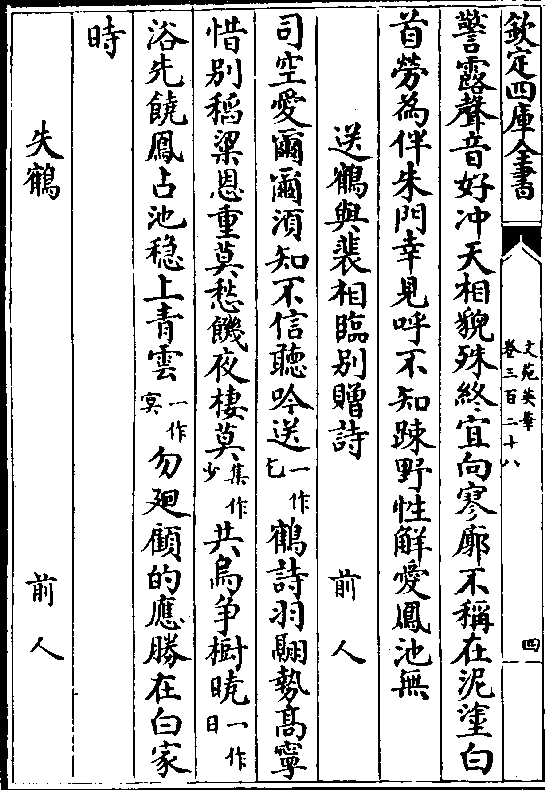 欽定四庫全書
文苑英華
卷三百二十八
四
警露聲音好冲天相貌殊終宜向寥廓不稱在泥塗白
首勞為伴朱門幸見呼不知踈野性解愛鳳池無
送鶴與裴相臨別贈詩 前人
司空愛爾爾須知不信聽吟送一作乞鶴詩羽翮勢高寧
惜別稻粱恩重莫愁饑夜棲莫集作少共烏争樹曉一作日
浴先饒鳳占池穏上青雲一作冥勿廻顧的應勝在白家
時
失鶴 前人